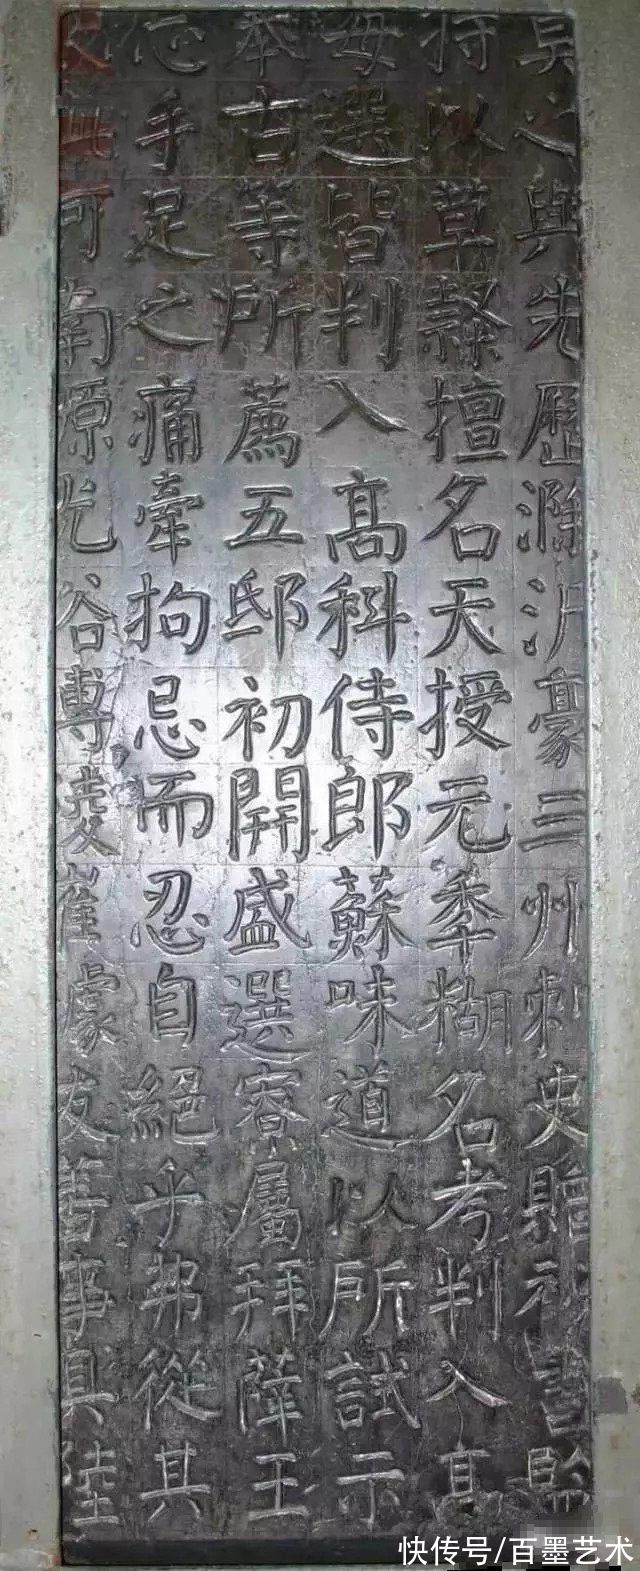 之與先歷滁沂豪三州刺史贈祕書監
特以草隸擅名天授元秊糊名考判入高
每選皆判入高科侍郎蘇味道以所試示
奉古等所薦五邸初開盛選寮屬拜薛王
手足之痛牽拘忌而忍自絕乎弗從其
河南源光裕博陵崔璩友善事具陸
快传号/百墨艺术